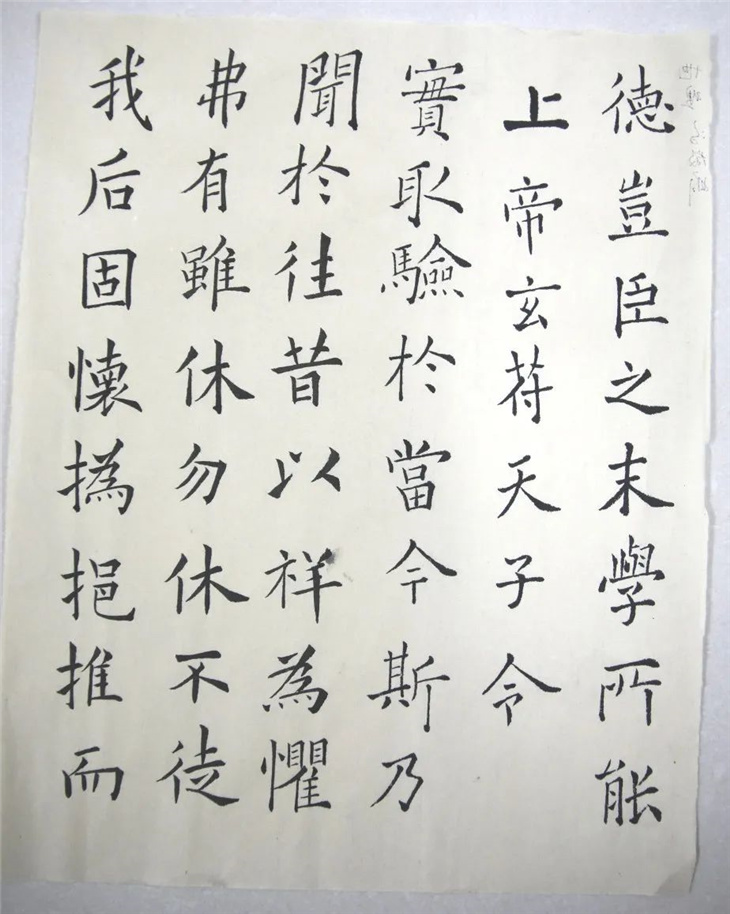 我后固懷撝挹推而
弗有雖休勿休不徒
聞於往昔以祥為懼
實取驗於當今斯乃
上帝玄苻天子令
德豈臣之末學所能